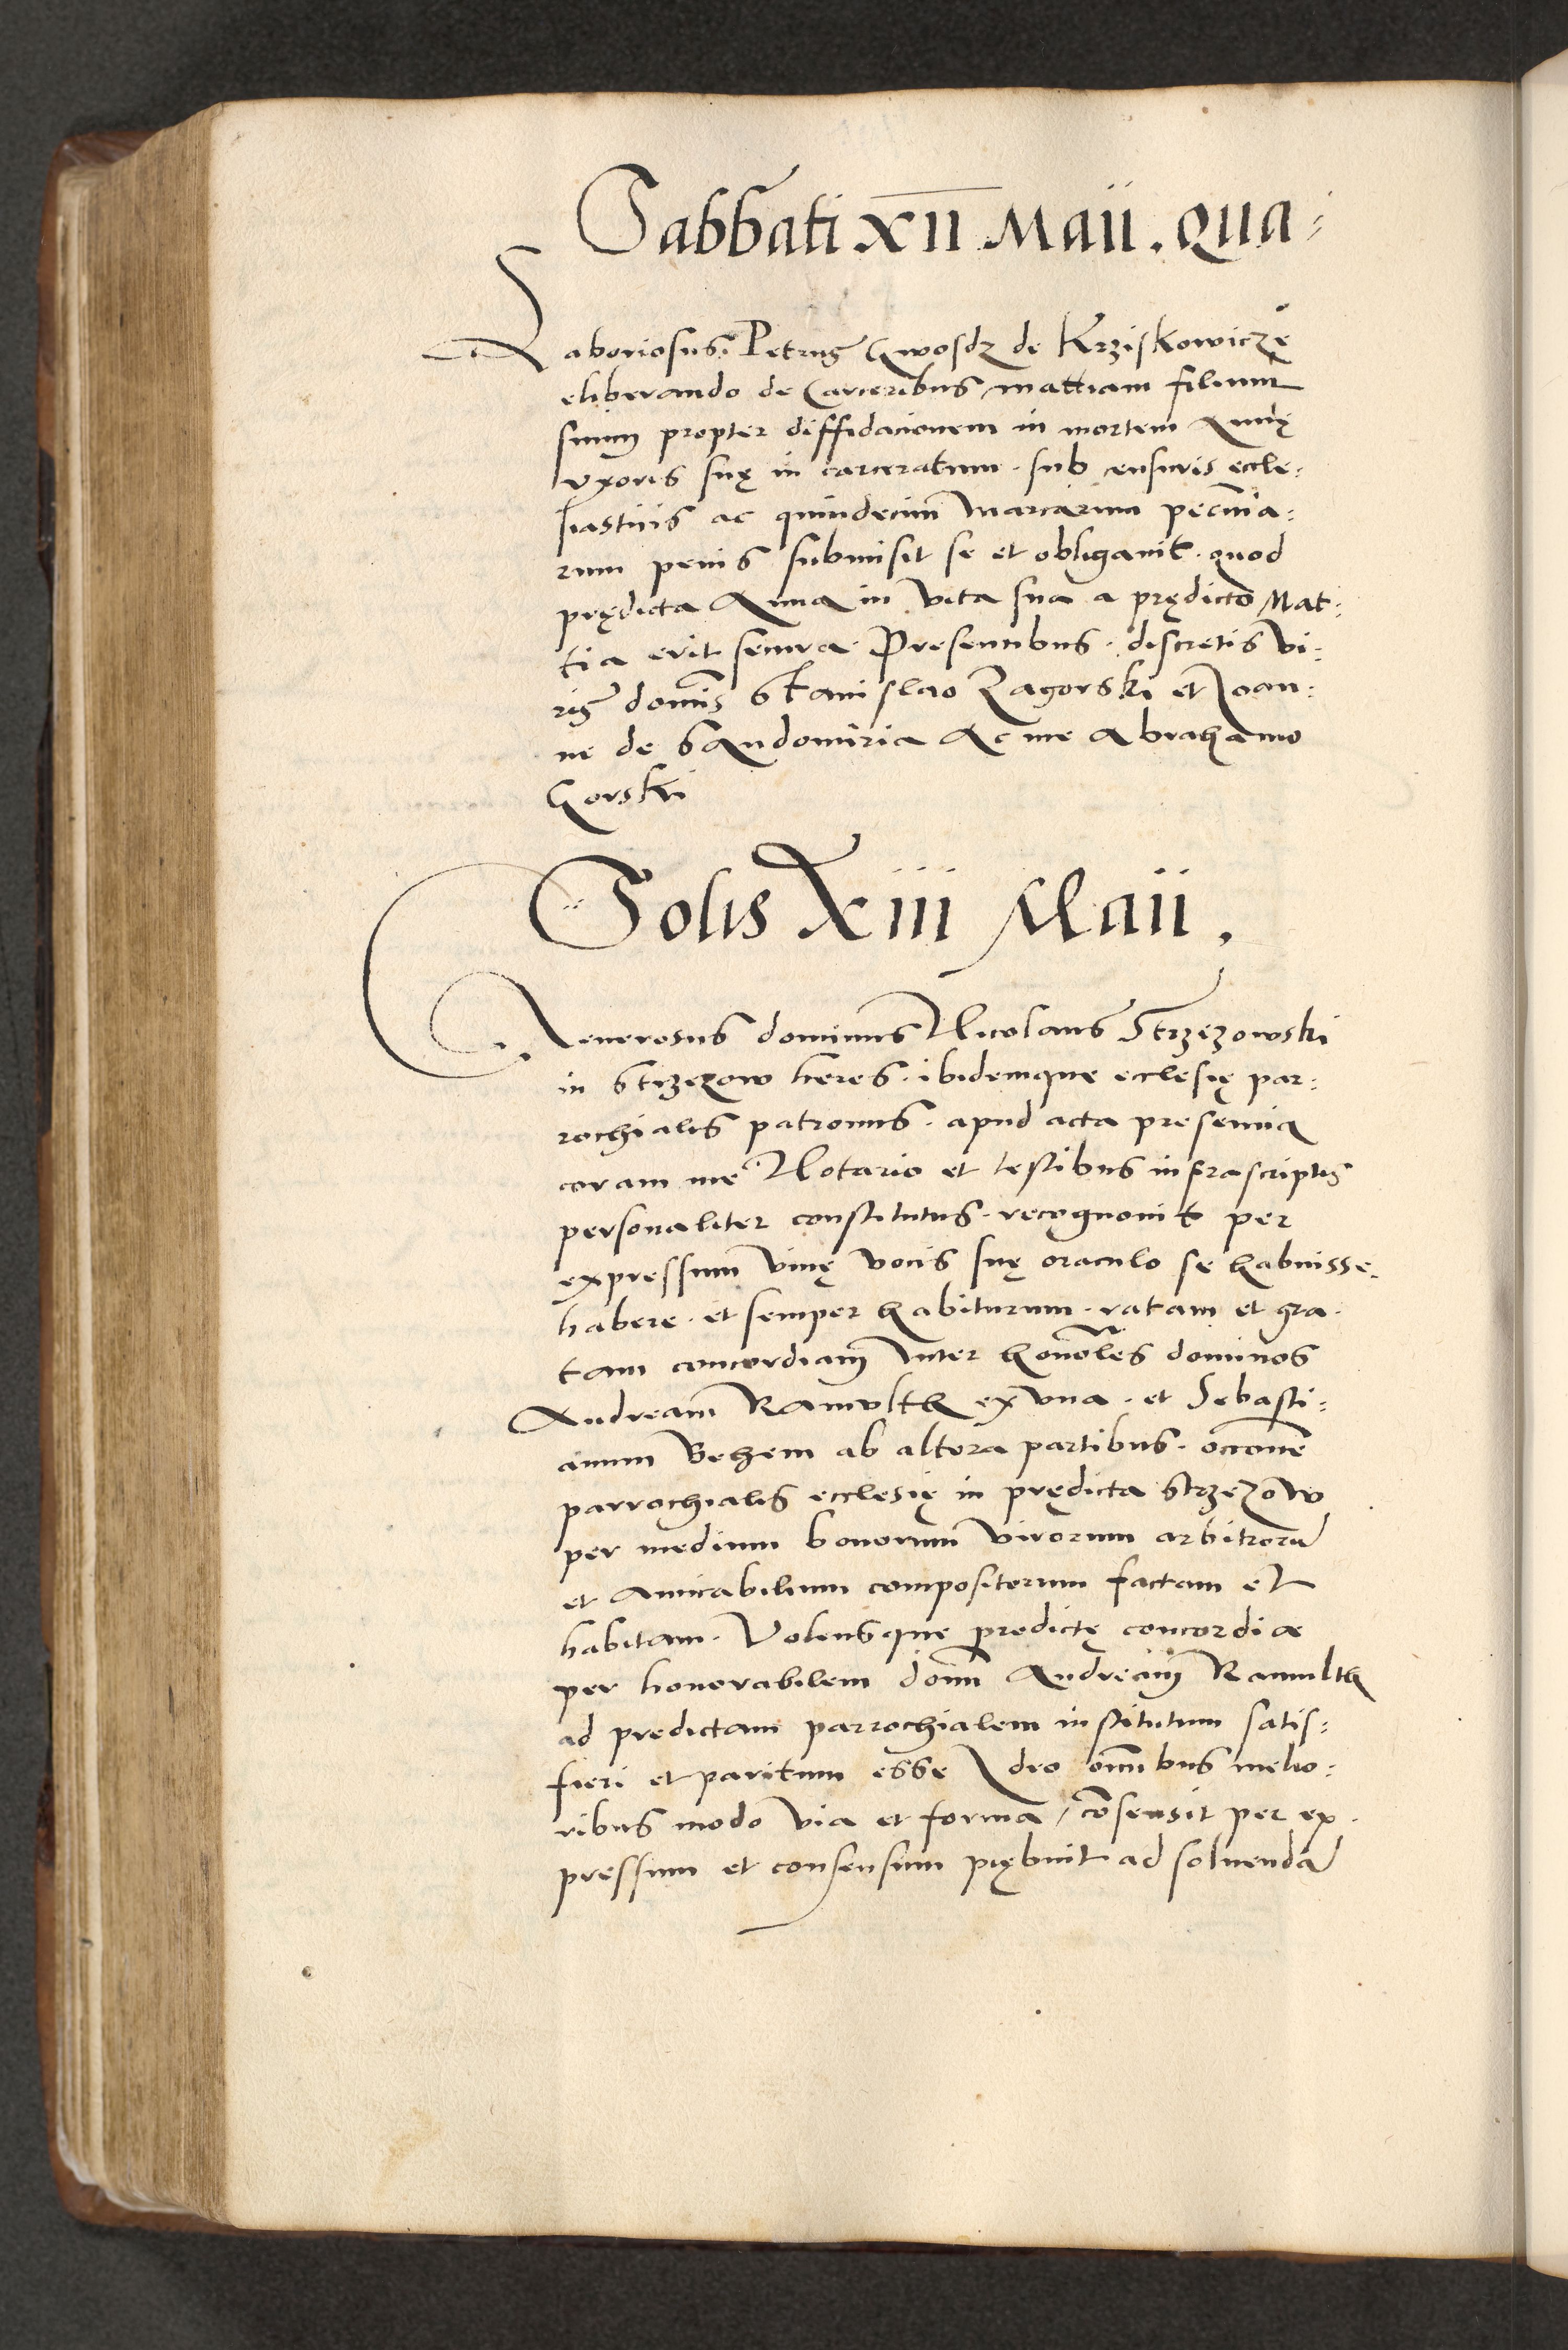 Sabbati XII Maii. Qua:
Laboriosus. Petrus Gwosdz de Krziskowiczę
eliberando de Carceribus mattiam filium
suum propter diffidacionem in mortem Annę
vxoris suę in carceratum. sub censuris eccle:
siasticis ac quindecim marcarum pecunia:
rum penis submisit se et obligauit. quod
prędicta Anna in vita sua a prędicto Mat:
tia erit secura. Presentibus. discretis vi:
ris domīs Stanislao Zagorski et Ioan:
ne de Sandomiria Ac me Abrahamo
Gorski
Solis Xiii Maii.
Generosus dominus Nicolaus Strzęzowski
in Strzezow heres. ibidemque ecclesię par:
rochialis patronus. apud acta presencia
coram me Notario et testibus infrascriptis
personaliter constitutus. recognouit per
expressum viuę vocis suę oraculo se habuisse.
habere. et semper habiturum. ratam et gra.
tam concordiam Inter honorāles dominos
Andream Ramulth ex vna. et Sebasti:
anum Behem ab altera partibus. occōne
parrochialis ecclesię in prędicta Strzezow
per medium bonorum virorum arbitrorū
et amicabilium compositorum factam et
habitam. Volensque predictę concordiæ
per honorabilem domī Andream Ramulth
ad predictam parrochialem institutum satis:
fieri et paritum esse Ideo omībus melio:
ribus modo via et forma / cōsensit per ex.
pressum et consensum prębuit ad soluendā